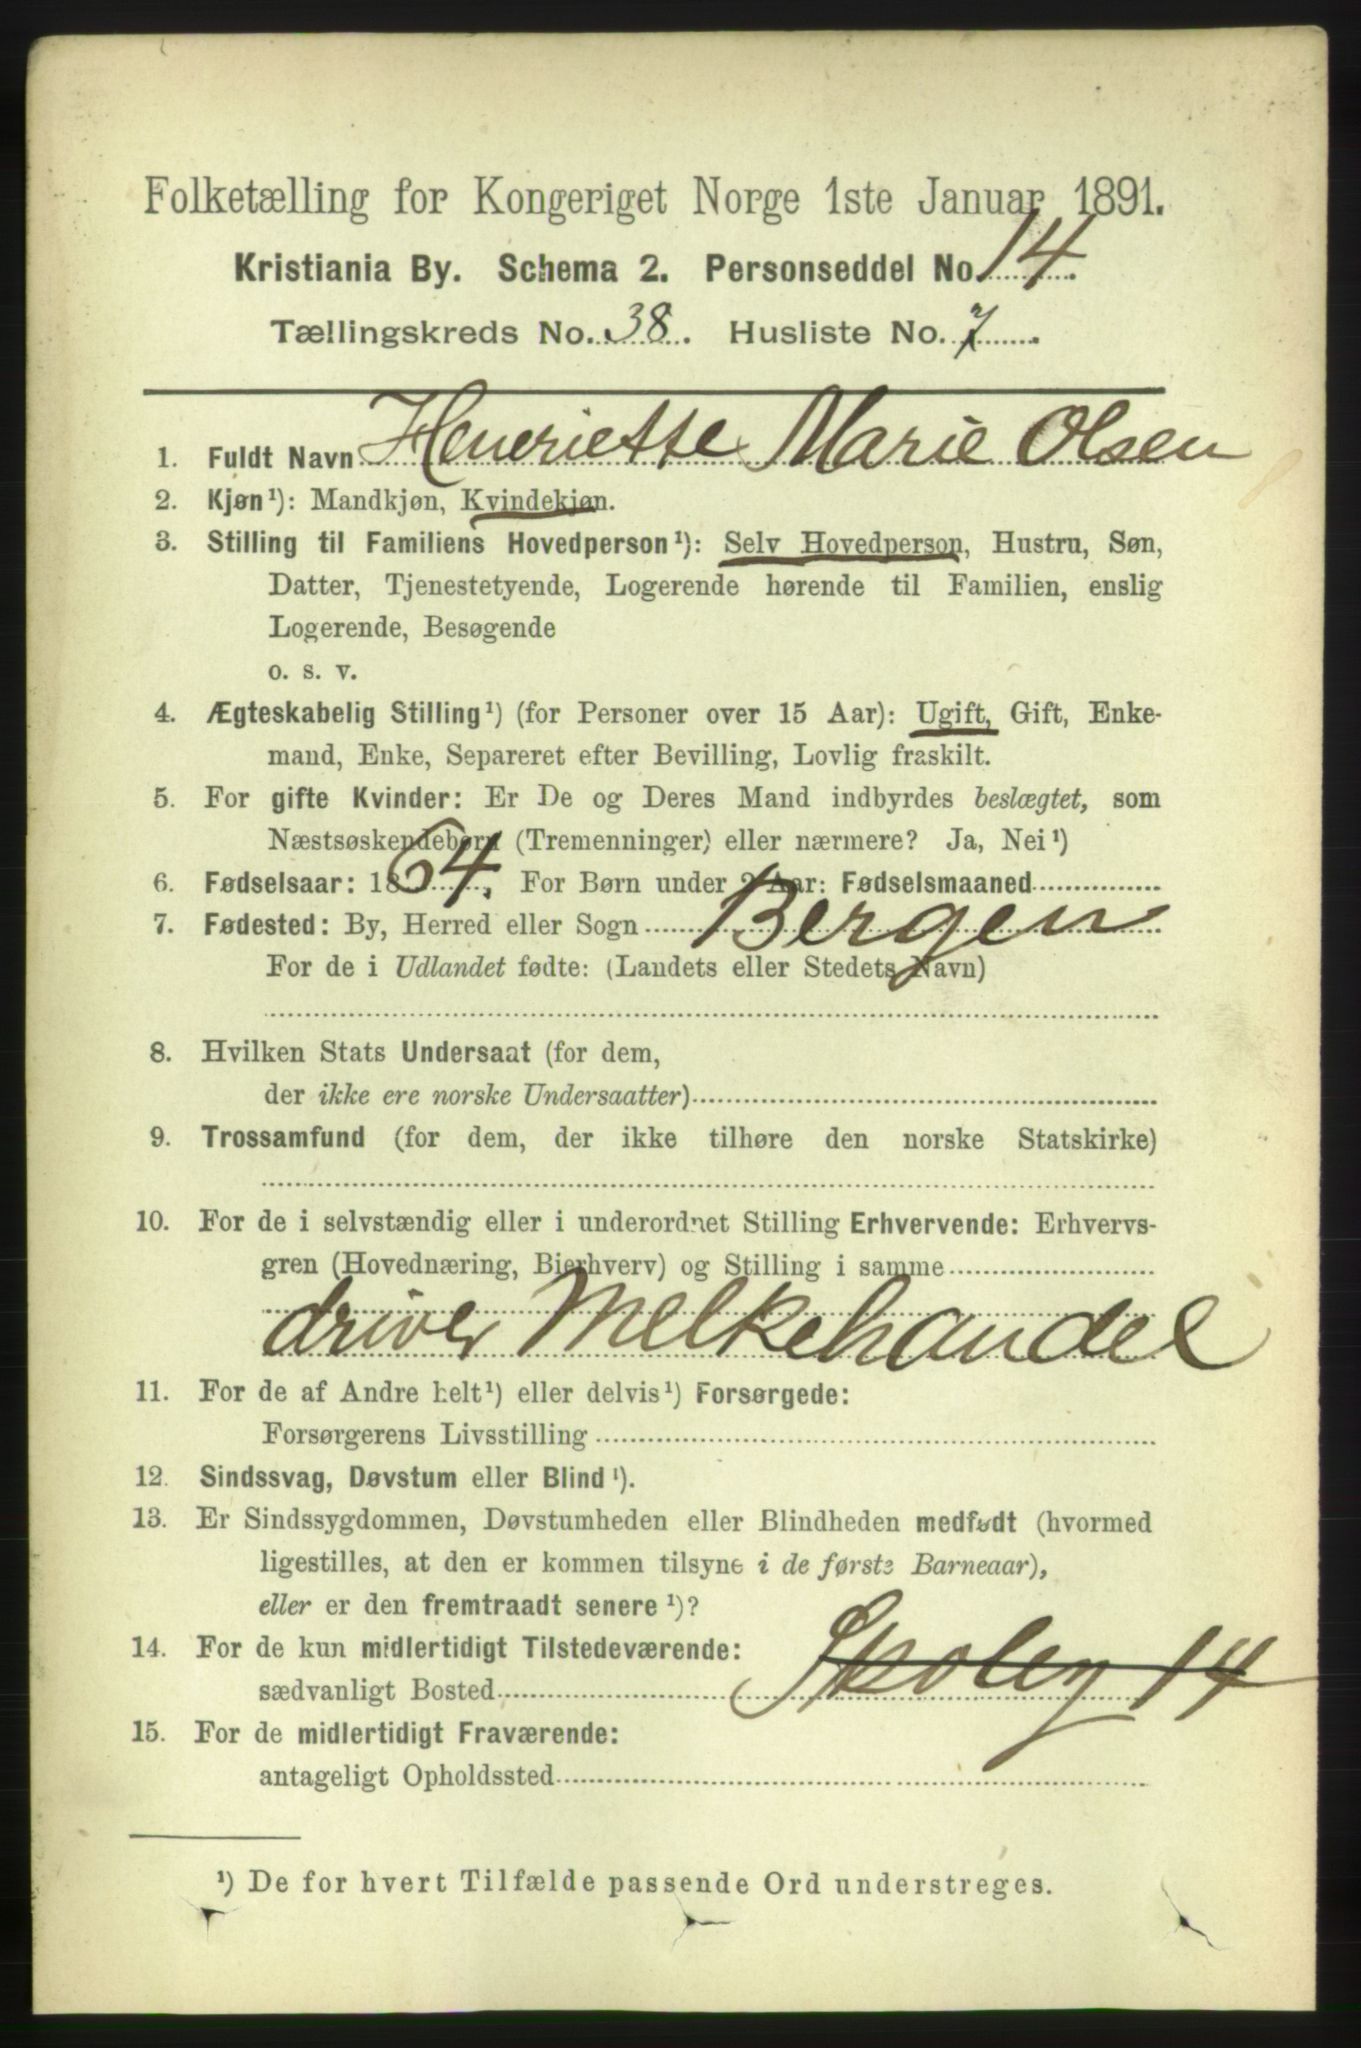 Folketælling for Kongeriget Norge 1ste Januar 1891.
Kristiania By. Schema 2. Personseddel No. 14.
Tællingskreds No. 38. Husliste No. 7.
1. Fuldt Navn Henriette Marie Olsen
2. Kjøn¹): Mandkjøn, Kvindekjøn.
3. Stilling til Familiens Hovedperson¹): Selv Hovedperson, Hustru, Søn,
Datter, Tjenestetyende, Logerende hørende til Familien, enslig
Logerende, Besøgende
o. s. v.
4. Ægteskabelig Stilling¹) (for Personer over 15 Aar): Ugift, Gift, Enke-
mand, Enke, Separeret efter Bevilling, Lovlig fraskilt.
5. For gifte Kvinder: Er De og Deres Mand indbyrdes beslægtet, som
Næstsøskendebørn (Tremenninger) eller nærmere? Ja, Nei¹)
6. Fødselsaar: 1864. For Børn under 2 Aar: Fødselsmaaned
7. Fødested: By, Herred eller Sogn Bergen
For de i Udlandet fødte: (Landets eller Stedets Navn)
8. Hvilken Stats Undersaat (for dem,
der ikke ere norske Undersaatter)
9. Trossamfund (for dem, der ikke tilhøre den norske Statskirke)
10. For de i selvstændig eller i underordnet Stilling Erhvervende: Erhvervs-
gren (Hovednæring, Bierhverv) og Stilling i samme
driver Melkehandel
11. For de af Andre helt¹) eller delvis¹) Forsørgede:
Forsørgerens Livsstilling
12. Sindssvag, Døvstum eller Blind¹).
13. Er Sindssygdommen, Døvstumheden eller Blindheden medfødt (hvormed
ligestilles, at den er kommen tilsyne i de første Barneaar),
eller er den fremtraadt senere¹)?
14. For de kun midlertidigt Tilstedeværende:
sædvanligt Bosted Skoleg 14
15. For de midlertidigt Fraværende:
antageligt Opholdssted
¹) De for hvert Tilfælde passende Ord understreges.